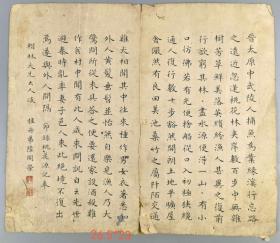 晉太原中武陵人捕魚為業緣溪行忘路
之遠近忽逢桃花林夾岸數百步中無雜
樹芳草鮮美落英繽紛漁人甚異之復前
行欲窮其林〻盡水源便得一山〻有小
口彷彿若有光便捨船從口入初極狹纔
通人復行數十步豁然開朗土地平曠屋
舍儼然有良田美池桑竹之屬阡陌交通
雞犬相聞其中往來種作男女衣著悉如
外人黃髮垂髫並怡然自樂見漁人乃大
驚問所從來具答之便要還家設酒殺雞
作食村中聞有此人咸來問訊自云先世
避秦時亂率妻子邑人來此絕境不復出
焉遂與外人間隔 節錄桃花源記奉
樹林大兄大人